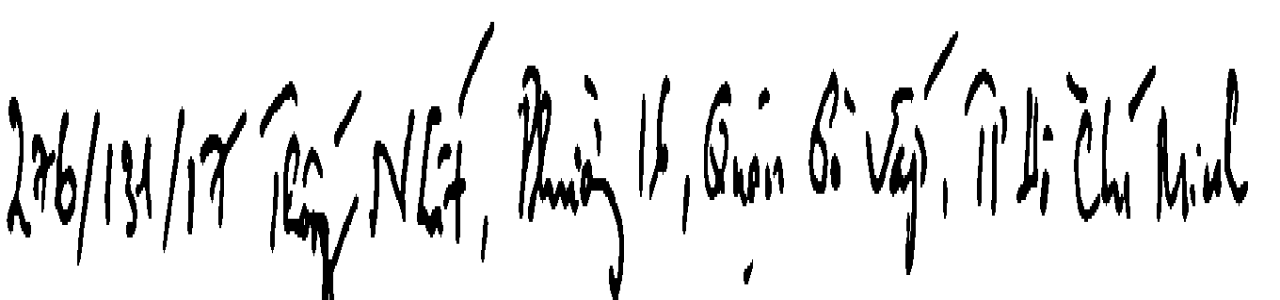 276/131/17 Thống Nhất, Phường 16, Quận Gò Vấp, TP Hồ Chí Minh